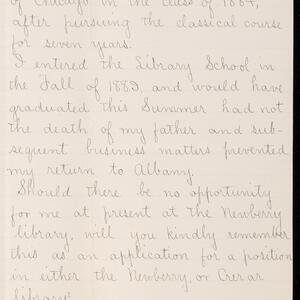 of Chicago in the class of 1884,
after pursuing the classical course
for seven years.
I entered the Library School in
the Fall of 1889, and would have
graduated this Summer had not
the death of my father and sub-
sequent business matters prevented
my return to Albany.
Should there be no opportunity
for me at present at the Newberry
library, will you kindly remember
this as an application for a position
in either the Newberry, or Crerar
library.